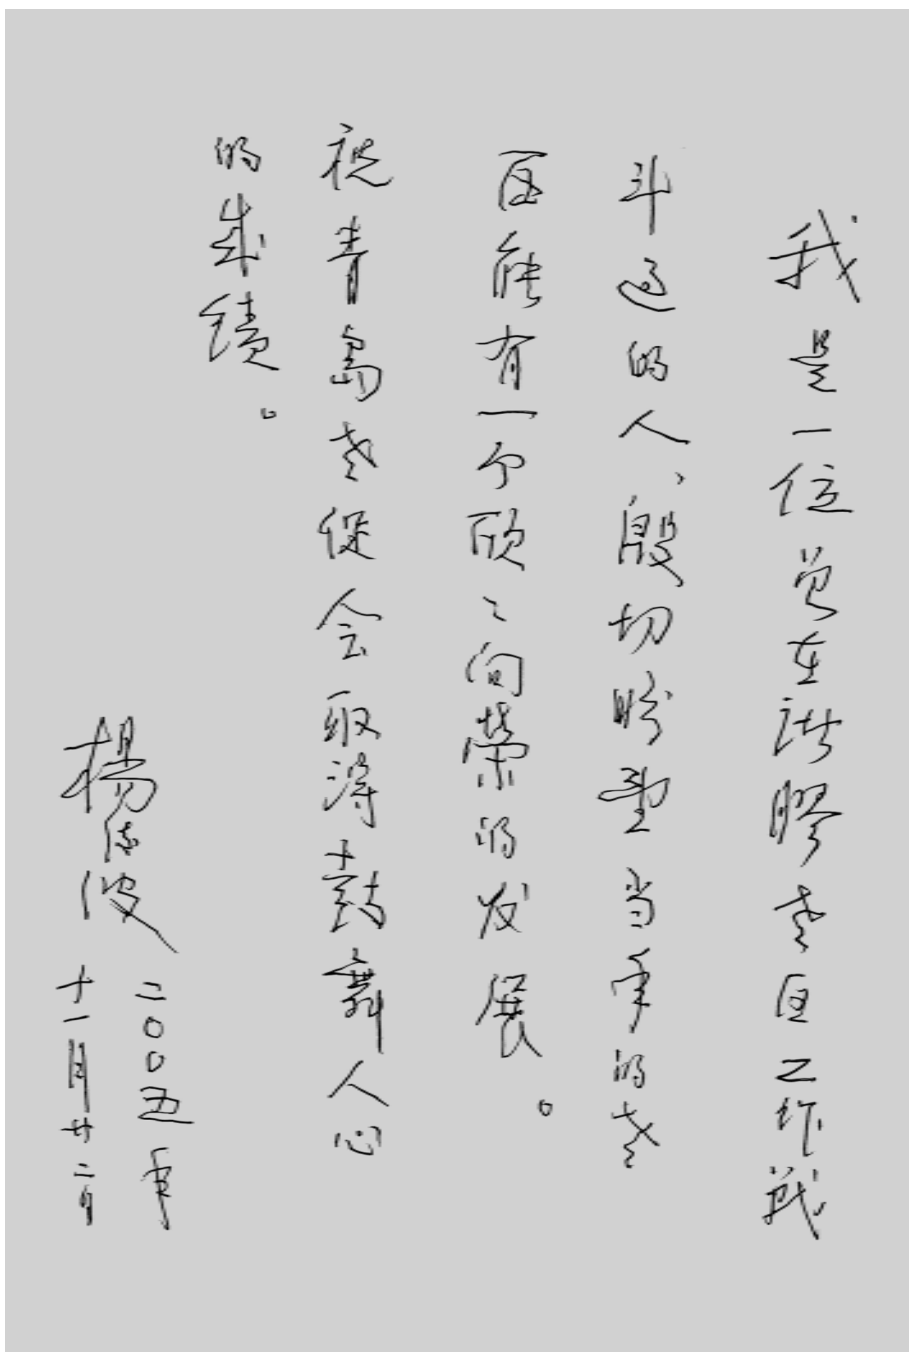 我是一位曾在诸膠老区工作战
斗过的人、殷切盼望当年的老
区能有一个欣々向榮的发展。
祝青岛老促会取得鼓舞人心
的成績。
楊波
二〇〇五年
十一月廿二日